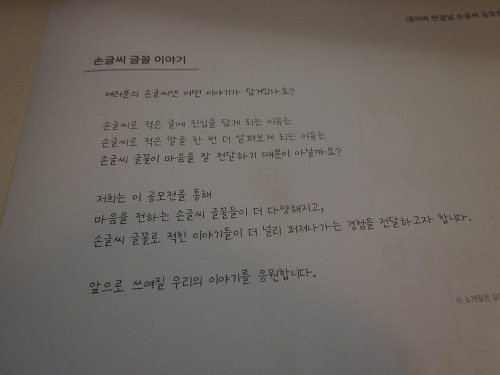 네이버 한글날 손글씨 공모전
손글씨 글꼴 이야기
여러분의 손글씨엔 어떤 이야기가 담겨있나요?
손글씨로 적은 글에 진심을 담게 되는 이유는
손글씨로 적은 말을 한 번 더 살펴보게 되는 이유는
손글씨 글꼴이 마음을 잘 전달하기 때문이 아닐까요?
저희는 이 공모전을 통해
마음을 전하는 손글씨 글꼴들이 더 다양해지고,
손글씨 글꼴로 적힌 이야기들이 더 널리 퍼져나가는 경험을 전달하고자 합니다.
앞으로 쓰여질 우리의 이야기를 응원합니다.
위 소개글은